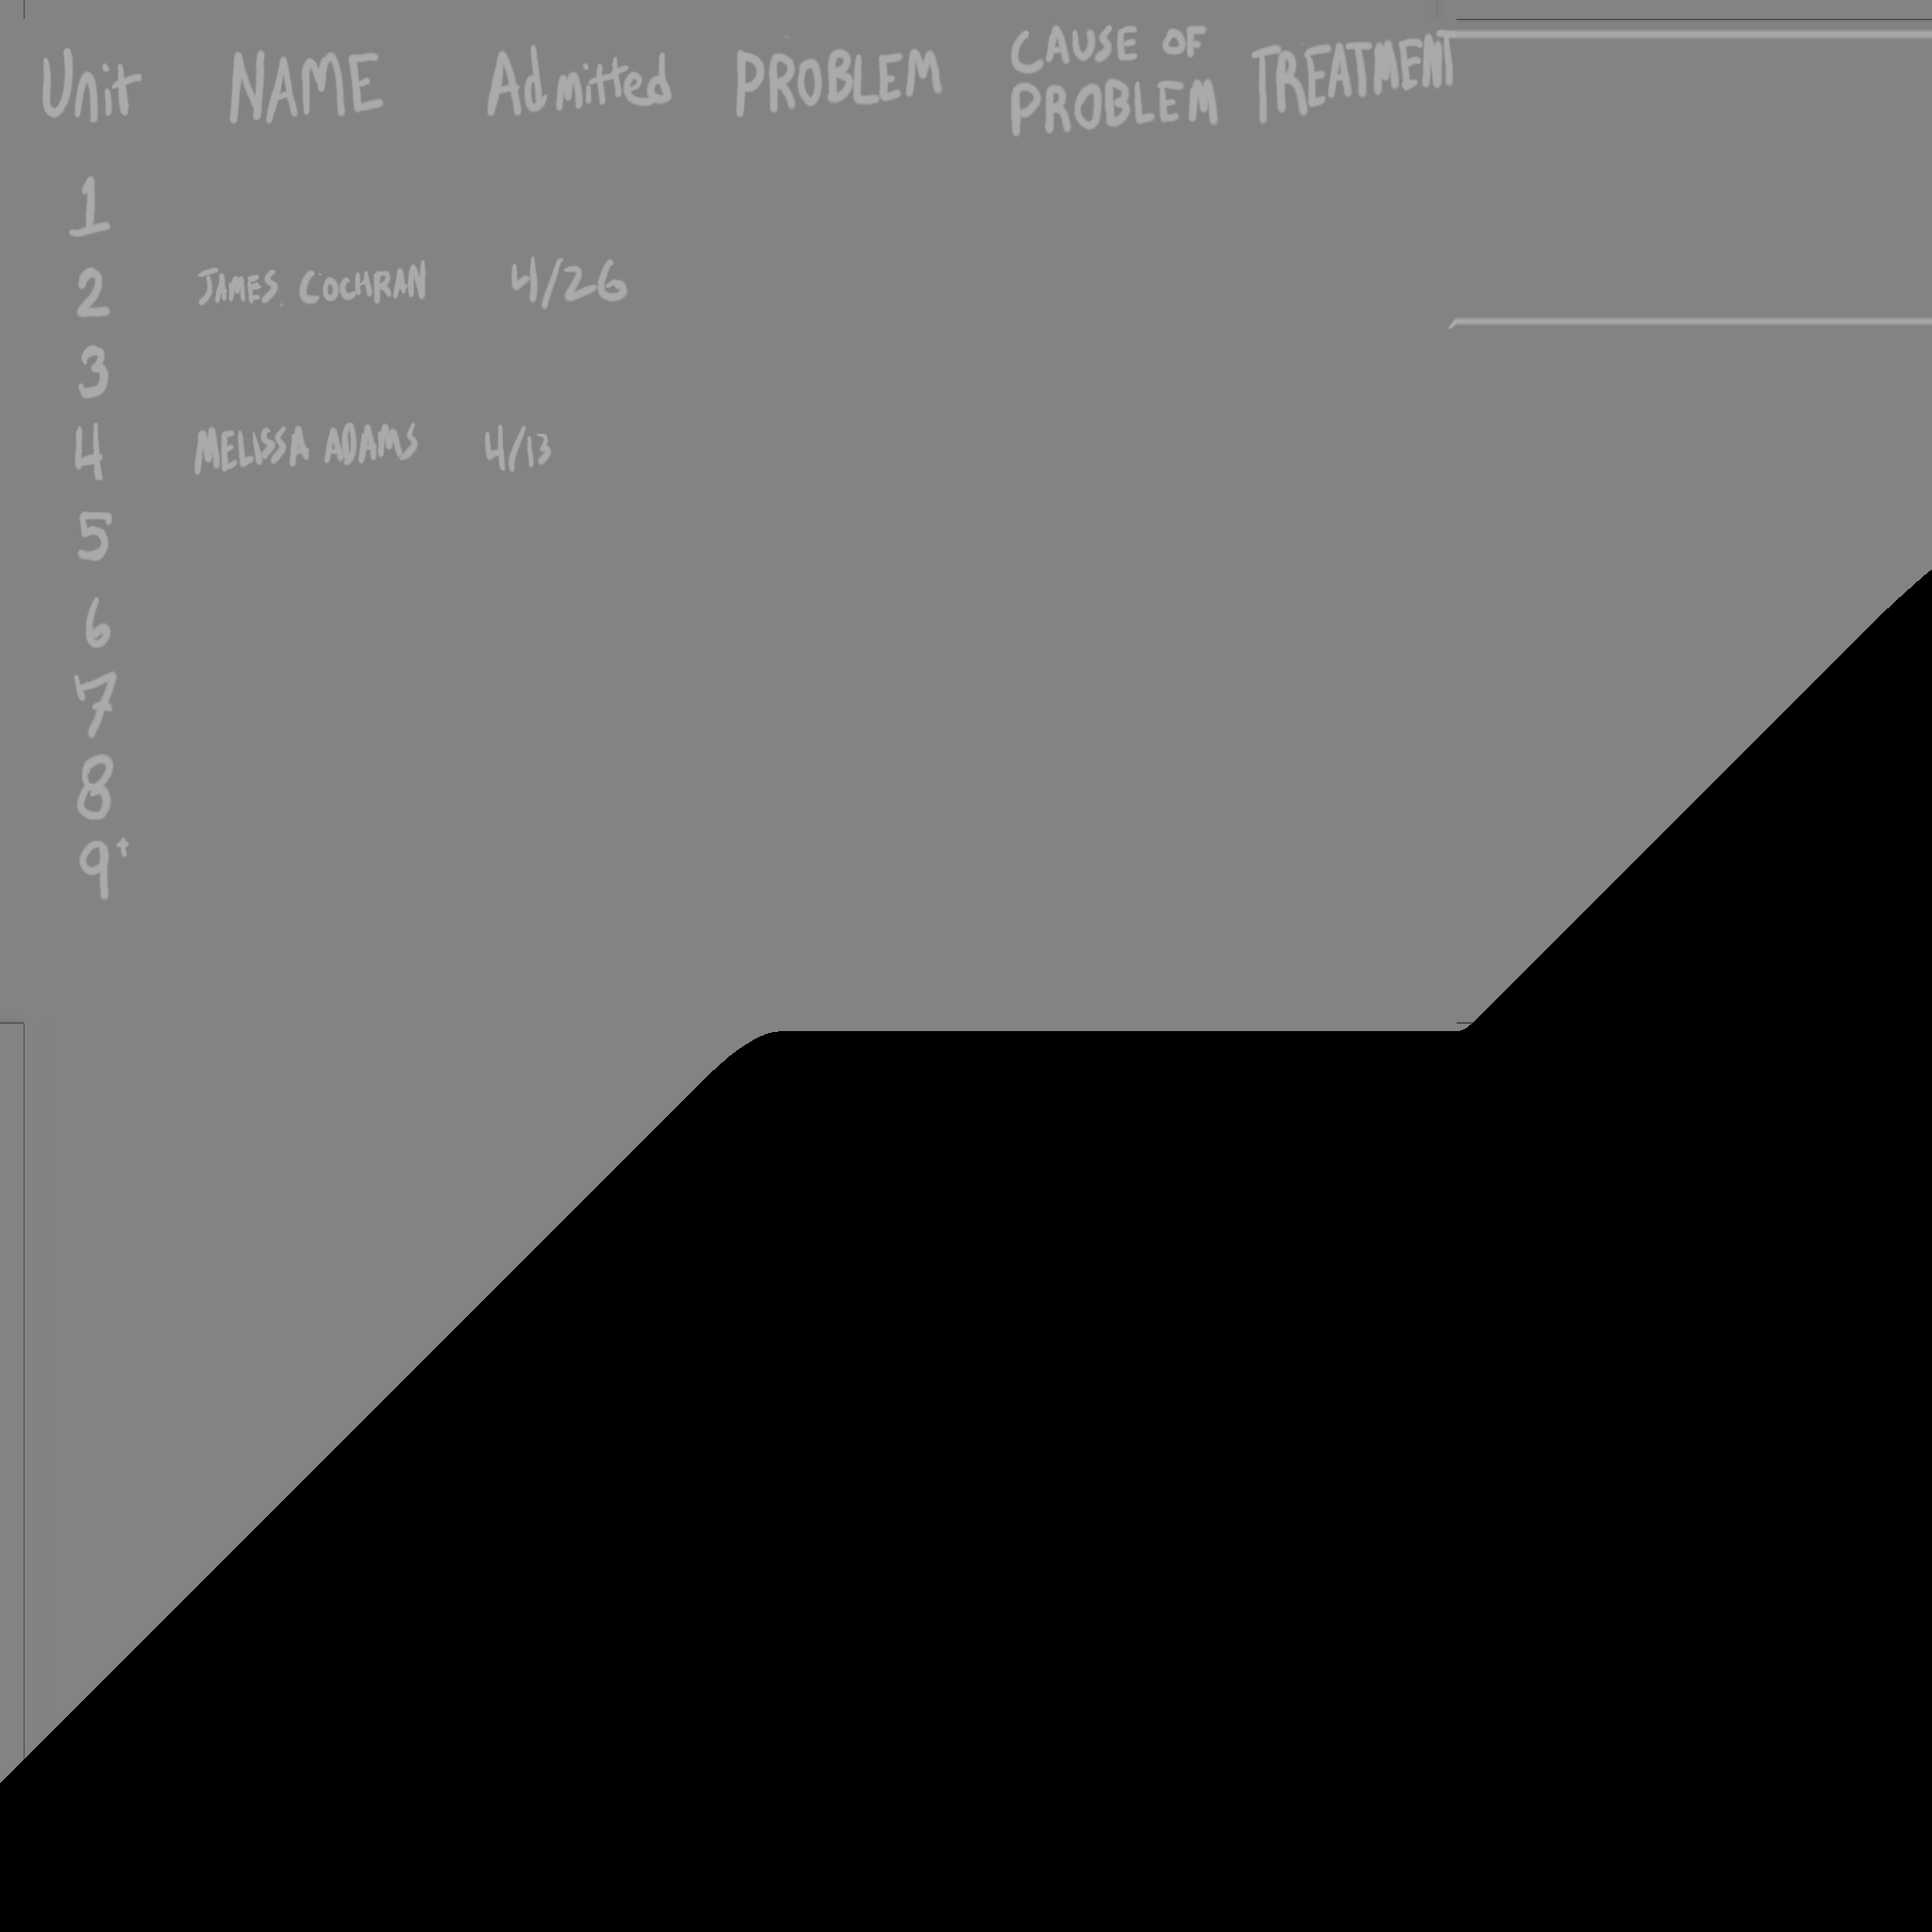 Unit NAME Admitted PROBLEM CAUSE OF PROBLEM TREATMENT
1
2 JAMES. COCHRAN 4/26
3
4 MELISSA ADAMS 4/13
5
6
7
8
9+